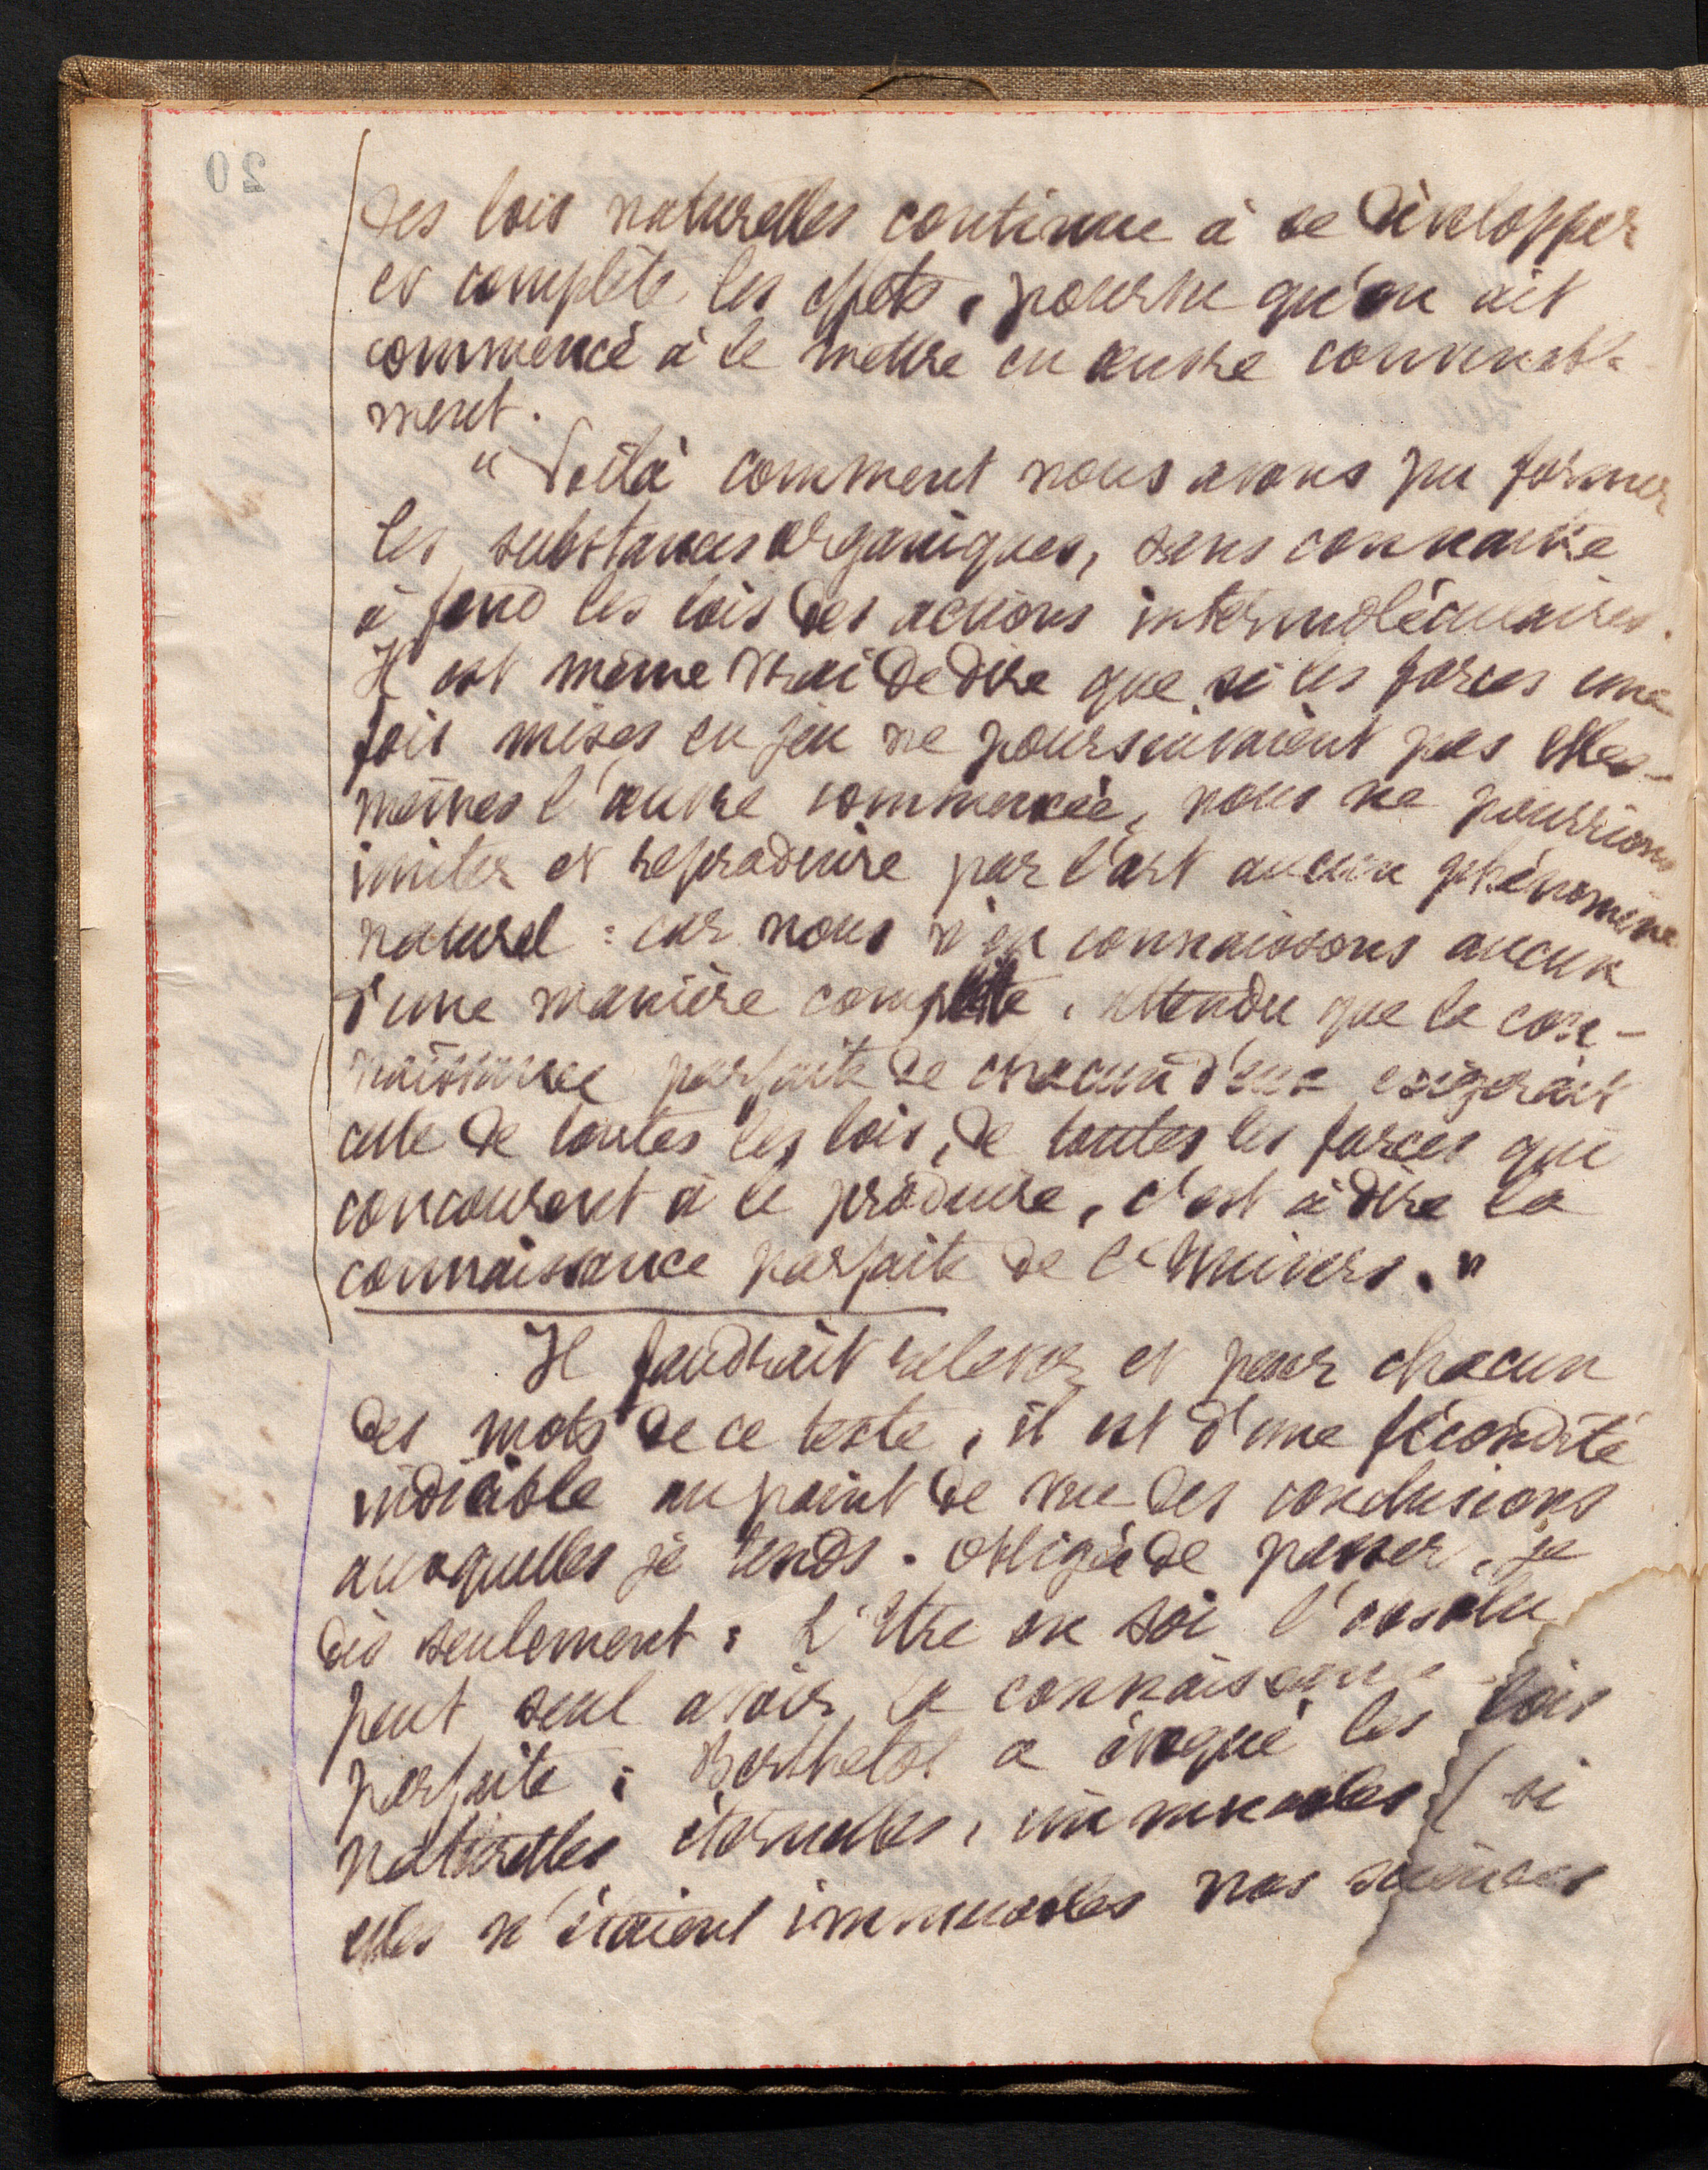 20
des lois naturelles continue à se développer
et complète les effets, pourvu qu'on ait
commencé à le mettre en œuvre convenable
ment.
" Voilà comment nous avons pu former
les substances organiques, sans connaitre
à fond les lois des actions intermoléculaires.
Il est même vrai de dire que si les forces une
fois mises en jeu ne poursuivaient pas elles-
mêmes l'œuvre commencée, nous ne pourrions
imiter et reproduire par l'art aucun phénomène
naturel : car nous n'en connaissons aucun
d'une manière complète, attendu que la con-
naissance parfaite de chacun d'eux exigerait
celle de toutes les lois, de toutes les forces qui
concourent à le produire, c'est à dire la
connaissance parfaite de l'Univers. "
Il faudrait relever et peser chacun
des mots de ce texte, il est d'une fécondité
indicible au point de vue des conclusions
auxquelles je tends. Obligé de passer, je
dis seulement : L'Etre en soi l'absolu
peut seul avoir la connaissance
parfaite ; Berthelot a invoqué les lois
naturelles éternelles, immuables (si
elles n'étaient immuables nos sciences